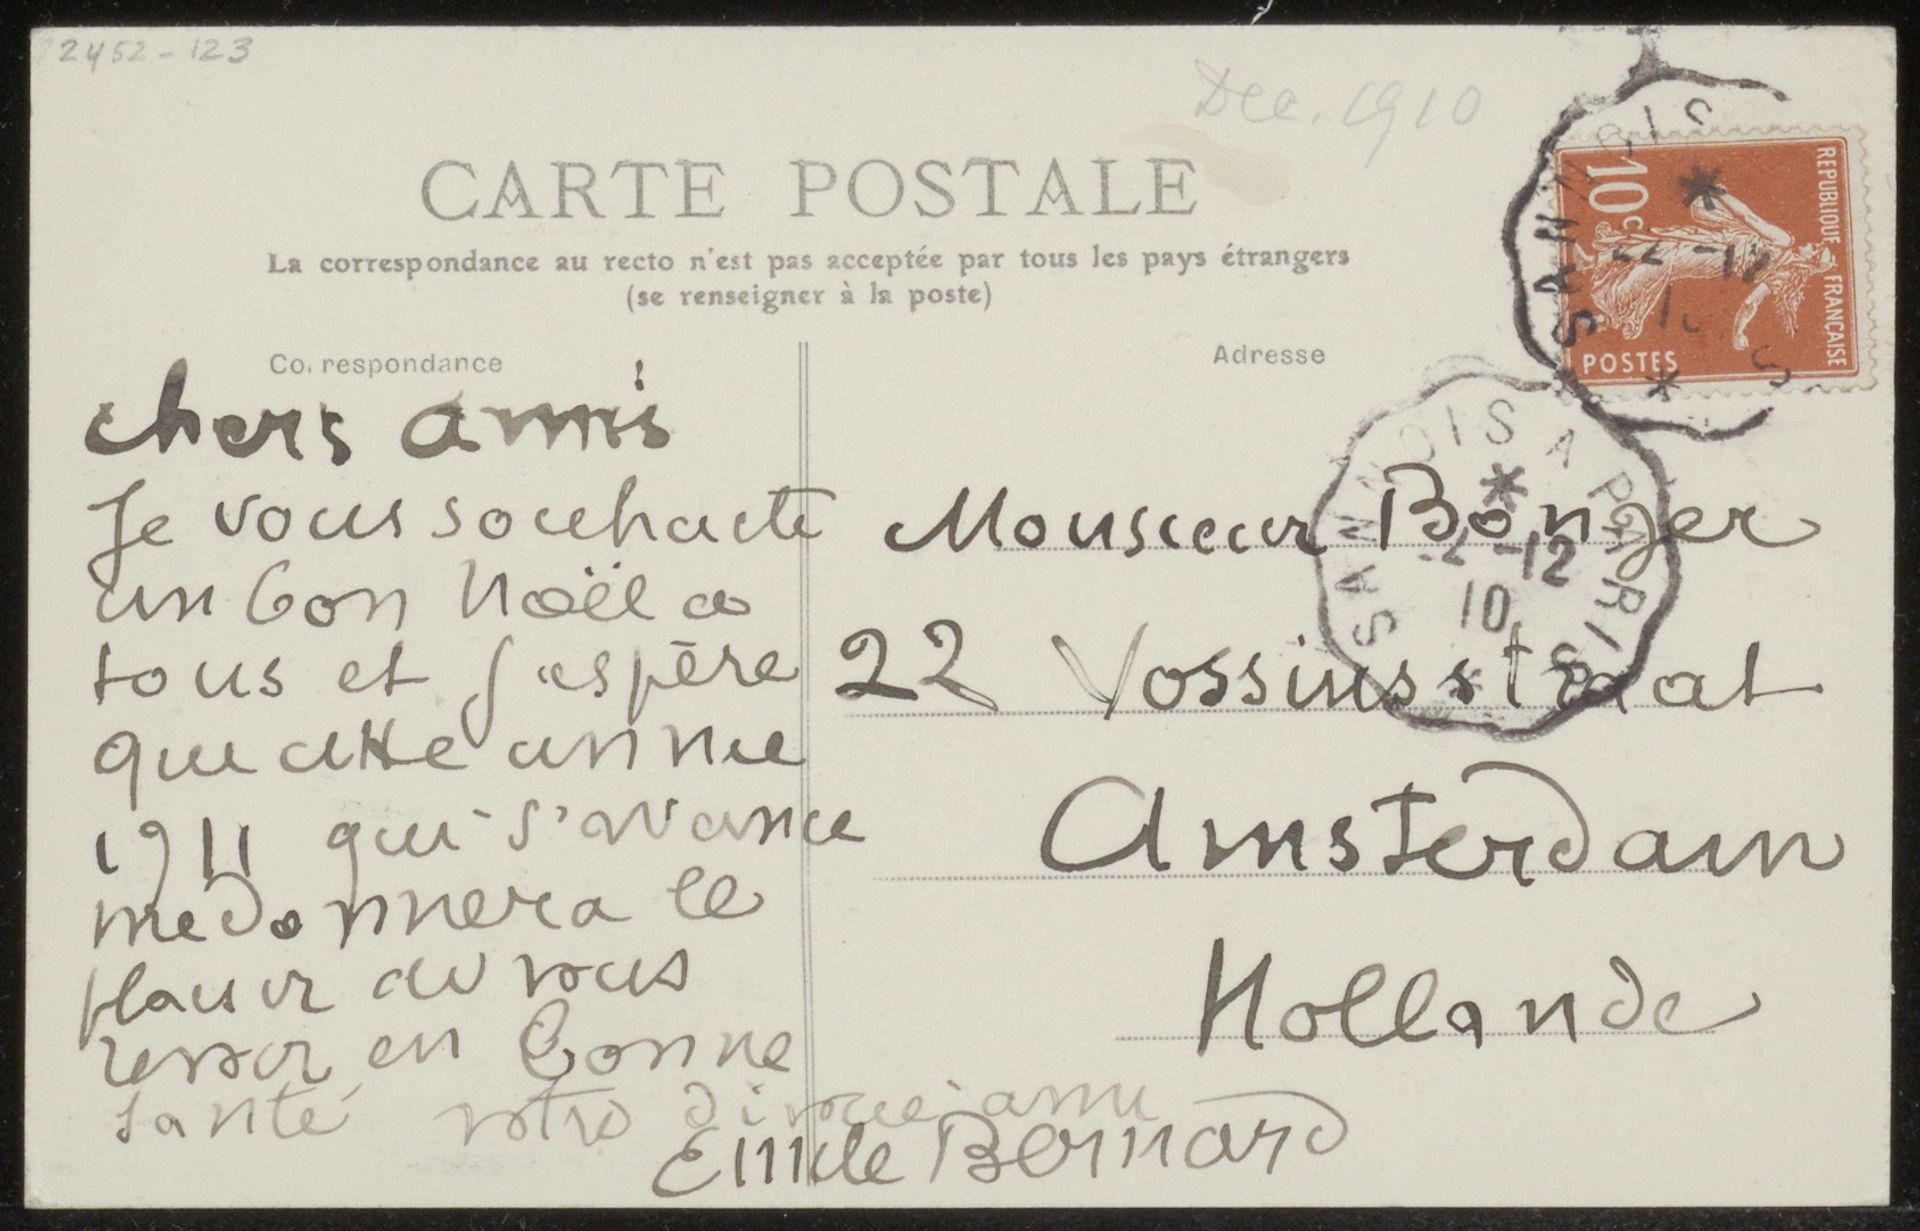 2452-123
Dec. 1910
CARTE POSTALE
La correspondance au recto n'est pas acceptée par tous les pays étrangers
(se renseigner à la poste)
Correspondance
Adresse
REPUBLIQUE FRANÇAISE
10c
POSTES
SANNOIS
SANNOIS A PARIS
-12
10
chers amis
Je vous souhaite
un bon Noël a
tous et j'espère
que cette année
1911 qui s'avance
me donnera le
plaisir de vous
revoir en bonne
santé votre dévoué ami
Emile Bernard
Monsieur Bonger
22 Vossiusstraat
Amsterdam
Hollande